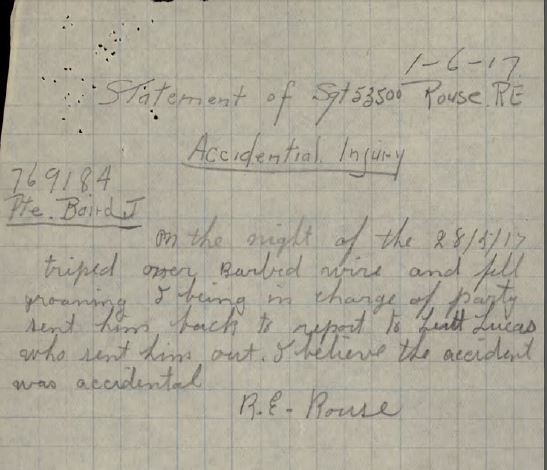 1-6-17
Statement of Sgt 53500 Rouse. RE
Accidential Injury
769184
Pte. Baird J
On the night of the 28/5/17
triped over Barbed wire and fell
groaning I being in charge of party
sent him back to report to Leutt Lucas
who sent him out. I believe the accident
was accidental
R.E- Rouse